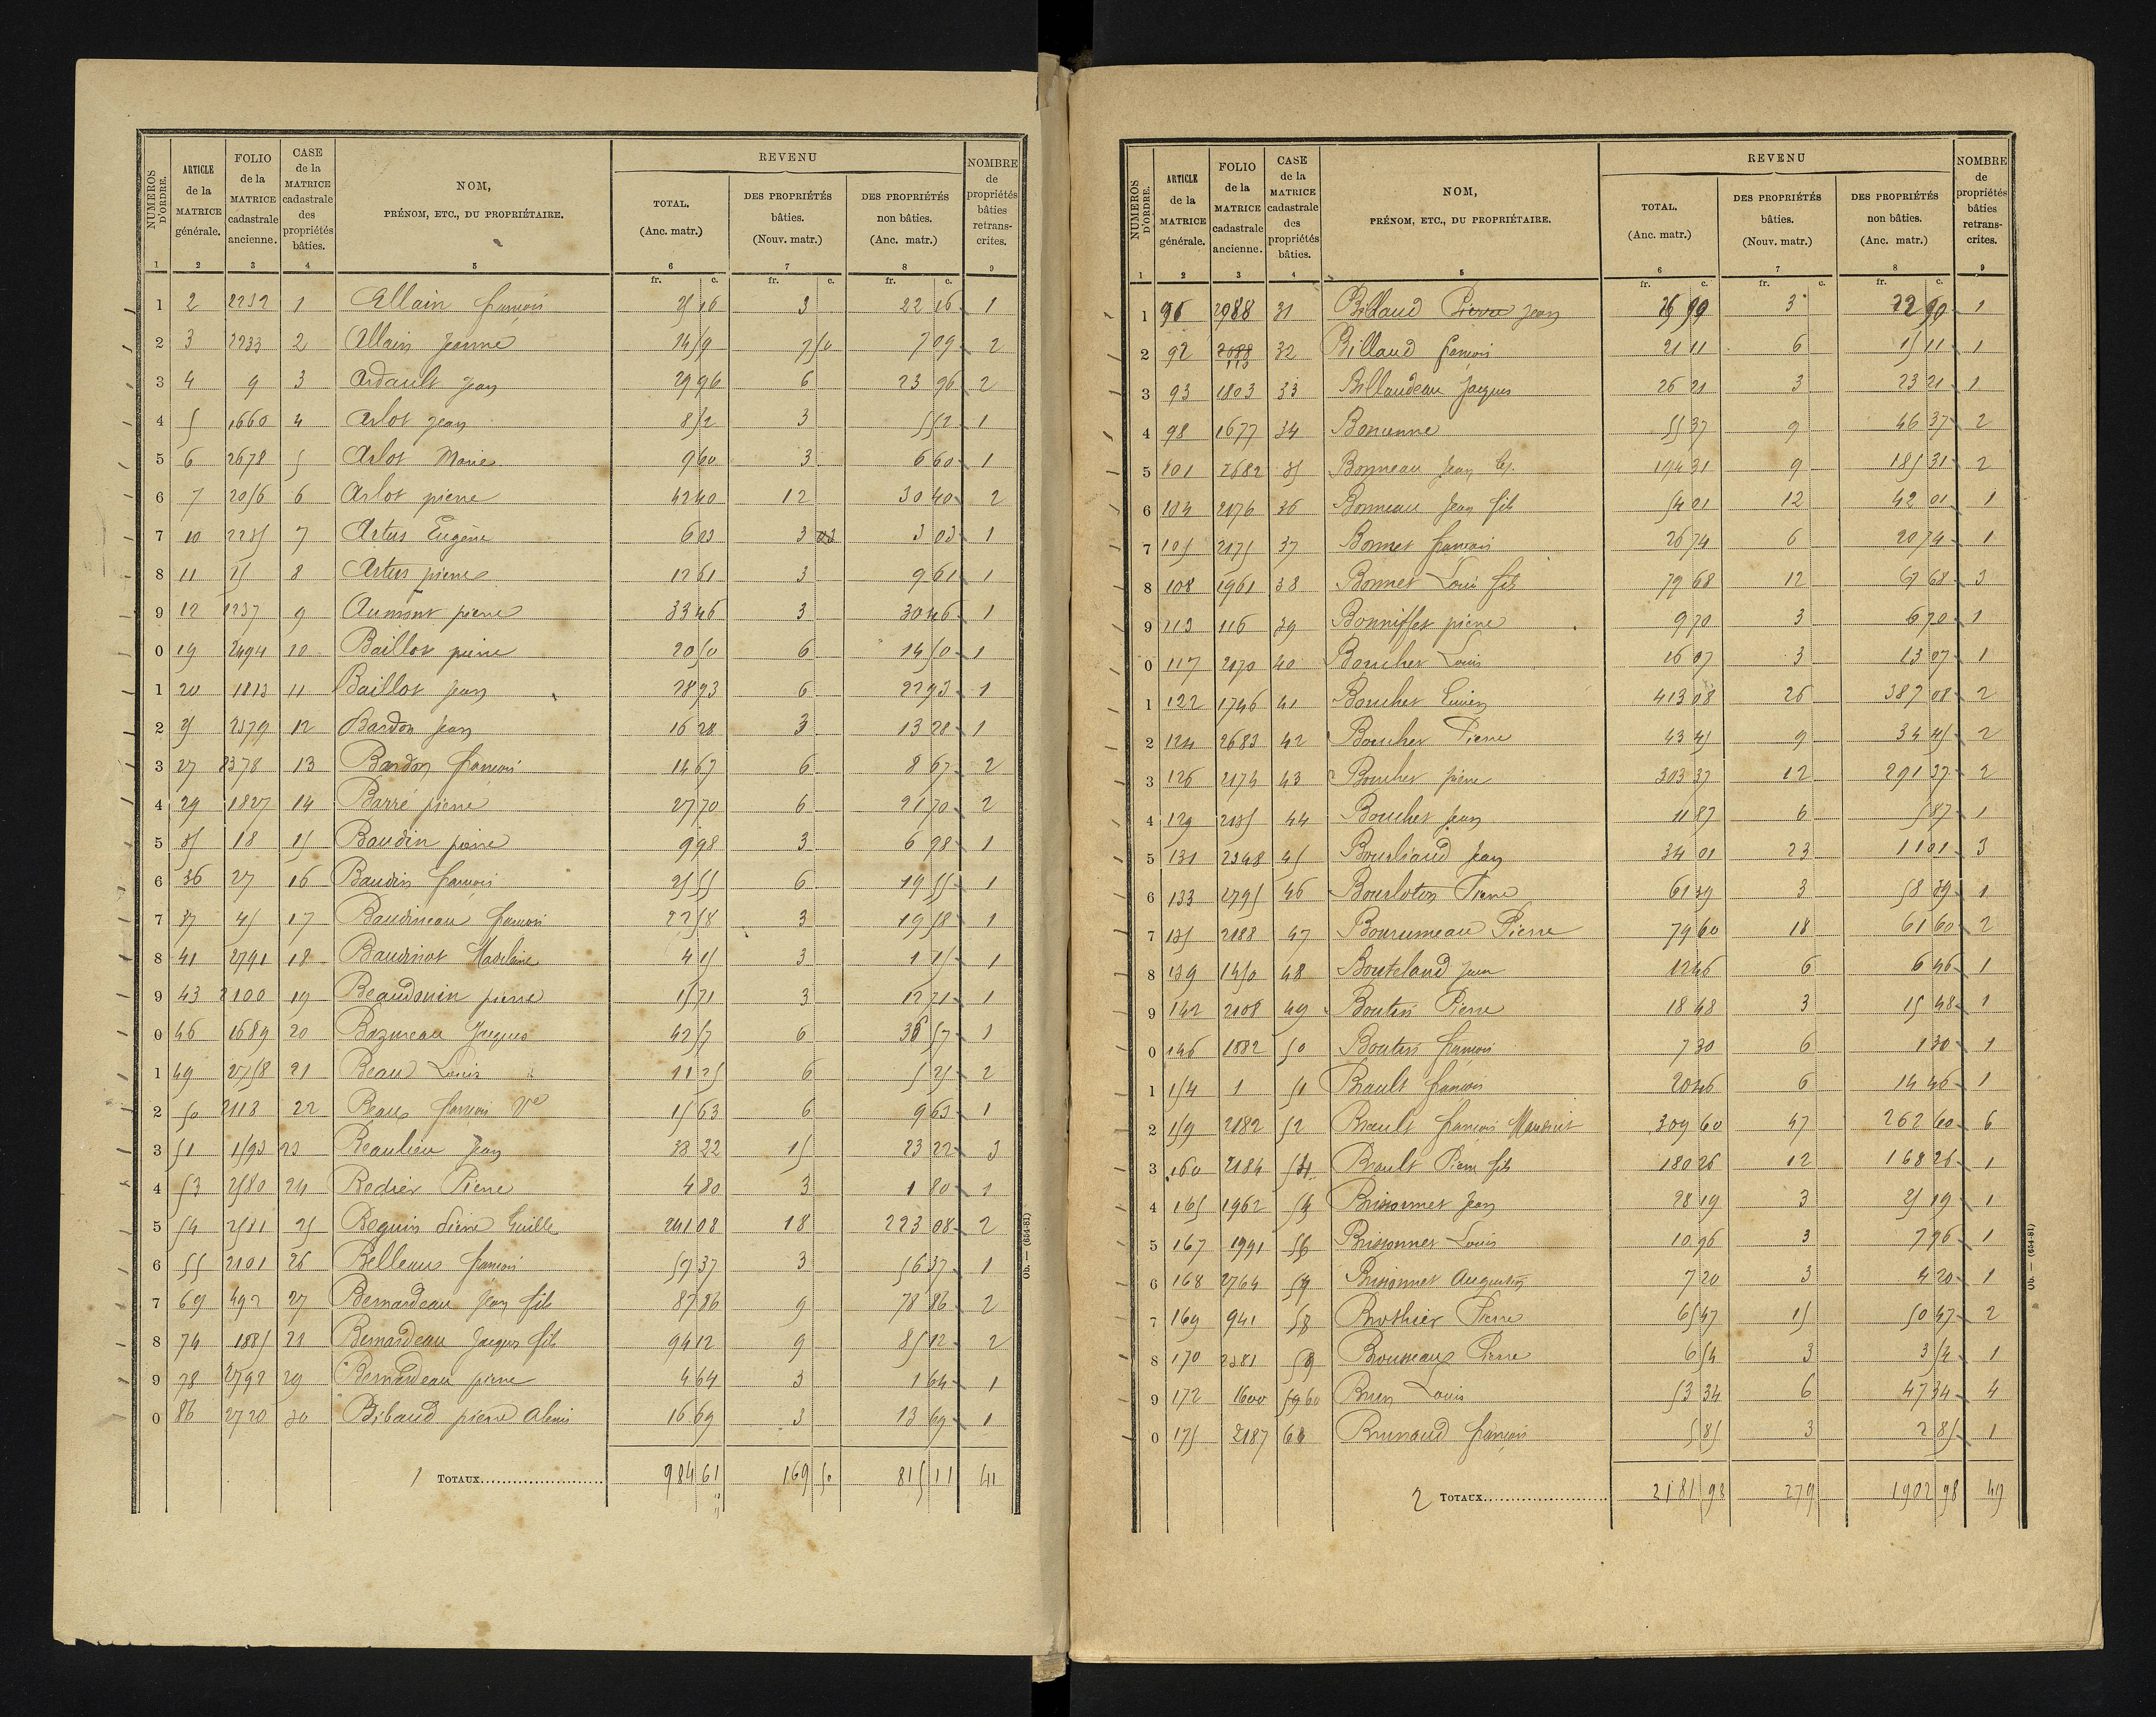 NUMEROS D'ORDRE. ARTICLE de la MATRICE générale. FOLIO de la MATRICE cadastrale ancienne. CASE de la MATRICE cadastrale des propriétés bâties. NOM, PRÉNOM, ETC., DU PROPRIÉTAIRE. REVENU TOTAL. (Anc. matr.) DES PROPRIÉTÉS bâties. (Nouv. matr.) DES PROPRIÉTÉS non bâties. (Anc. matr.) NOMBRE de propriétés bâties retrans-crites.
1 2 3 4 5 6 7 8 9
fr. c. fr. c. fr. c.
1 2 2232 1 Allain françois 25 16 3 22 16 1
2 3 2233 2 Allain Jeanne 14 59 7 50 7 09 2
3 4 9 3 Ardault Jean 29 96 6 23 96 2
4 5 1660 4 Arlot Jean 8 52 3 5 52 1
5 6 2678 5 Arlot Marie 9 60 3 6 60 1
6 7 2056 6 Arlot pierre 42 40 12 30 40 2
7 10 2235 7 Artus Eugène 6 03 3 03 3 03 1
8 11 15 8 Artus pierre 12 61 3 9 61 1
9 12 1237 9 Aumont pierre 33 46 3 30 46 1
0 19 2494 10 Baillot pierre 20 50 6 14 50 1
1 20 1813 11 Baillot Jean 28 93 6 22 93 1
2 25 2379 12 Bardon Jean 16 28 3 13 28 1
3 27 2378 13 Bardon françois 14 67 6 8 67 2
4 29 1827 14 Barré pierre 27 70 6 21 70 2
5 35 18 15 Baudin pierre 9 98 3 6 98 1
6 36 27 16 Baudin françois 25 55 6 19 55 1
7 37 45 17 Baudineau françois 22 58 3 19 58 1
8 41 2791 18 Baudinot Madelaine 4 15 3 1 15 1
9 43 2100 19 Beaudouin pierre 15 71 3 12 71 1
0 46 1689 20 Bazureau Jacques 42 57 6 36 57 1
1 49 2758 21 Beau Louis 11 25 6 5 25 2
2 50 2113 22 Beaux françois Vve 15 63 6 9 63 1
3 51 1593 23 Beaulieu Jean 38 22 15 23 22 3
4 53 2580 24 Bedier Pierre 4 80 3 1 80 1
5 54 2581 25 Beguin Pierre Guille 241 08 18 223 08 2
6 55 2101 26 Belleau françois 59 37 3 56 37 1
7 69 492 27 Bernardeau Jean fils 87 86 9 78 86 2
8 74 1885 28 Bernardeau Jacques fils 94 12 9 85 12 2
9 78 2792 29 Bernardeau pierre 4 64 3 1 64 1
0 86 2720 30 Bibaud pierre Alexis 16 69 3 13 69 1
1 TOTAUX 984 61 169 50 815 11 41
Ob. — (654-81)
NUMEROS D'ORDRE. ARTICLE de la MATRICE générale. FOLIO de la MATRICE cadastrale ancienne. CASE de la MATRICE cadastrale des propriétés bâties. NOM, PRÉNOM, ETC., DU PROPRIÉTAIRE. REVENU TOTAL. (Anc. matr.) DES PROPRIÉTÉS bâties. (Nouv. matr.) DES PROPRIÉTÉS non bâties. (Anc. matr.) NOMBRE de propriétés bâties retrans-crites.
1 2 3 4 5 6 7 8 9
fr. c. fr. c. fr. c.
1 96 2088 31 Billaud Pierre Jean 3 1
2 92 2088 113 32 Billaud françois 21 11 6 15 11 1
3 93 1803 33 Billaudeau Jacques 26 21 3 23 21 1
4 98 1677 34 Bonenne 55 37 9 46 37 2
5 101 2682 35 Bonneau Jean 194 31 9 185 31 2
6 104 2176 36 Bonneau Jean fils 54 01 12 42 01 1
7 105 2175 37 Bonnet françois 26 74 6 20 74 1
8 108 1961 38 Bonnet Louis fils 79 68 12 67 68 3
9 113 116 39 Bonniffet pierre 9 70 3 6 70 1
0 117 2170 40 Boucher Louis 16 07 3 13 07 1
1 122 1746 41 Boucher 413 08 26 387 08 2
2 124 2683 42 Boucher Pierre 43 45 9 34 45 2
3 126 2174 43 Boucher pierre 303 37 12 291 37 2
4 129 2135 44 Boucher Jean 11 87 6 5 87 1
5 131 2348 45 Bourliaud Jean 34 01 23 11 01 3
6 133 2795 46 Bourloton Pierre 61 39 3 58 39 1
7 135 2188 47 Bourumeau Pierre 79 60 18 61 60 2
8 139 1450 48 Bouteland Jean 12 46 6 6 46 1
9 142 2108 49 Boutin Pierre 18 48 3 15 48 1
0 146 1882 50 Boutin françois 7 30 6 1 30 1
1 154 1 51 Brault françois 20 46 6 14 46 1
2 159 2182 52 Brault françois 309 60 47 262 60 6
3 160 2184 54 Brault Pierre fils 180 26 12 168 26 1
4 165 1962 55 Brissonnet Jean 28 19 3 25 19 1
5 167 1991 56 Brissonnet Louis 10 96 3 7 96 1
6 168 2764 57 Brissonnet Augustin 7 20 3 4 20 1
7 169 941 58 Brothier Pierre 65 47 15 50 47 2
8 170 2381 59 Brousseau Pierre 6 54 3 3 54 1
9 172 1600 59 60 Brun Louis 53 34 6 47 34 4
0 175 2187 61 Brunaud françois 5 85 3 2 85 1
2 TOTAUX 2181 98 279 1902 98 49
Ob. — (654-81)